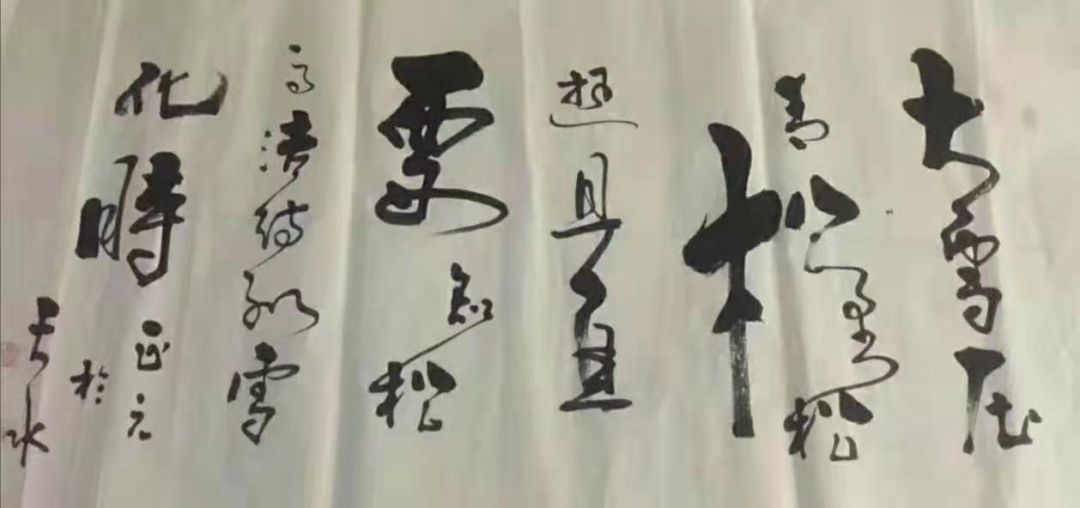 大雪压
青松青松
挺且直
要知松
高洁待到雪
化時
正元
於
天水